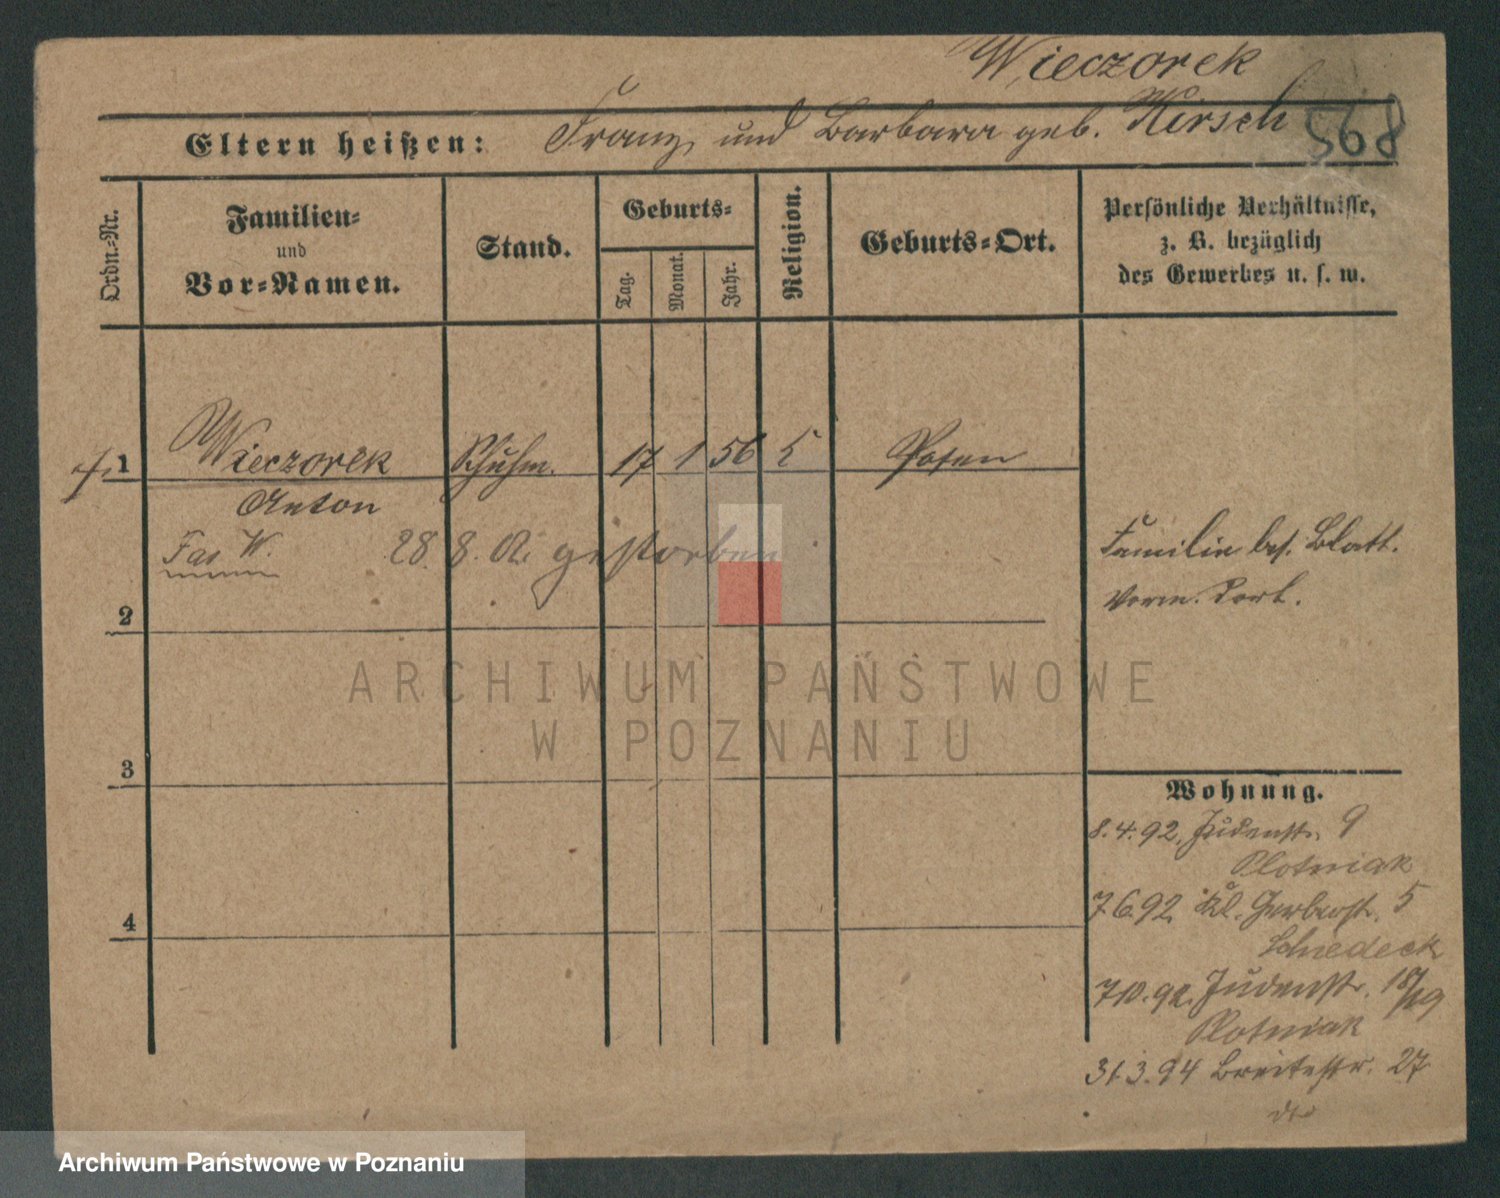 Wieczorek
Eltern heißen: Franz und Barbara geb. Kirsch
895
Ordn.-Nr.
Familien-
und
Vor-Namen.
Stand.
Geburts-
Tag.
Monat.
Jahr.
Religion.
Geburts-Ort.
Persönliche Verhältnisse,
z. B. bezüglich
des Gewerbes u. s. w.
1 Wieczorek Schuhm. 17 1 56 Posen
Anton
W. 28. 8. gestorben
Familie bes. Blatt.
2
3
4
Wohnung.
8.4.92. Judenstr. 9
Plotniak
7.6.92 Kl. Gerberstr. 5
7.10.92. Judenstr. 18/19
Plotniak
31.3.94 Breitestr. 27
dto
ARCHIWUM PAŃSTWOWE
W POZNANIU
Archiwum Państwowe w Poznaniu